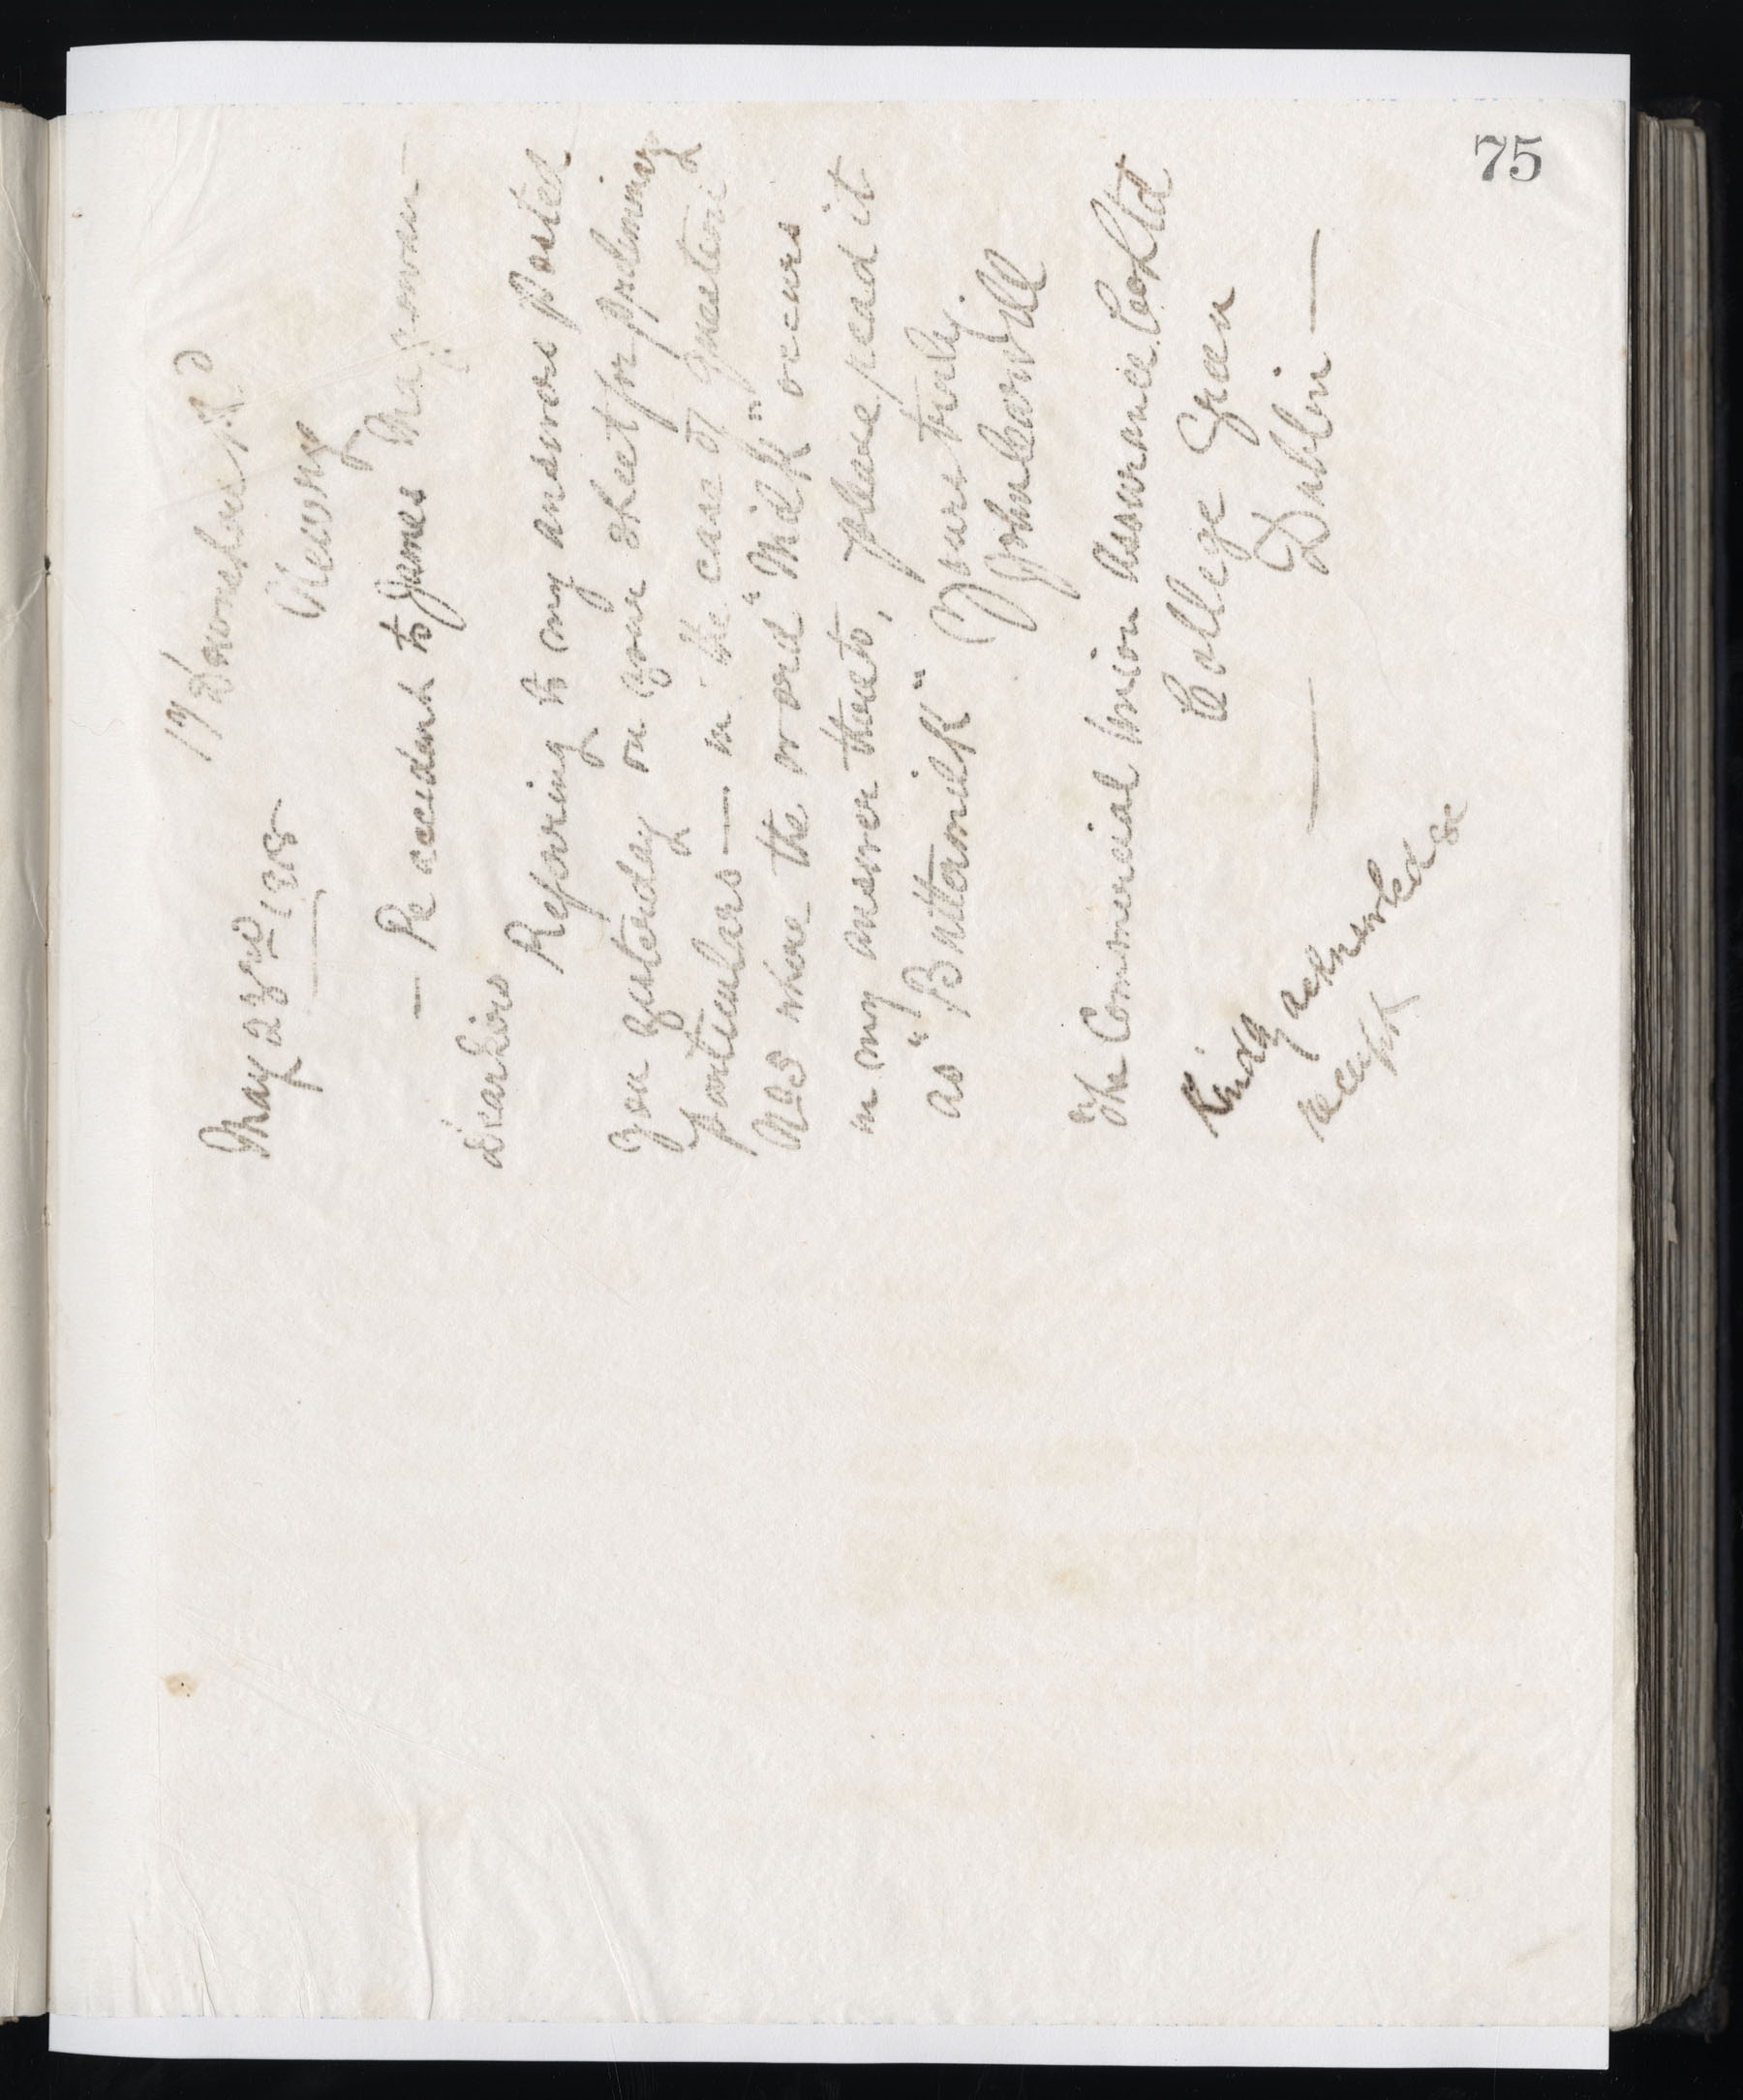 75
17 Downshire Rd
Newry
May 23rd 1918
— Re accident to James Magowan —
Dear Sirs
Refering to my answers posted
you yesterday on your sheet for preliminary
particulars — in the case of Question
No 3 where the word "Milk" occurs
in my answer thereto, please read it
as "Buttermilk" Yours truly
John
The Commercial Union Assurance Co Ltd
College Green
Dublin —
Kindly acknowledge
receipt